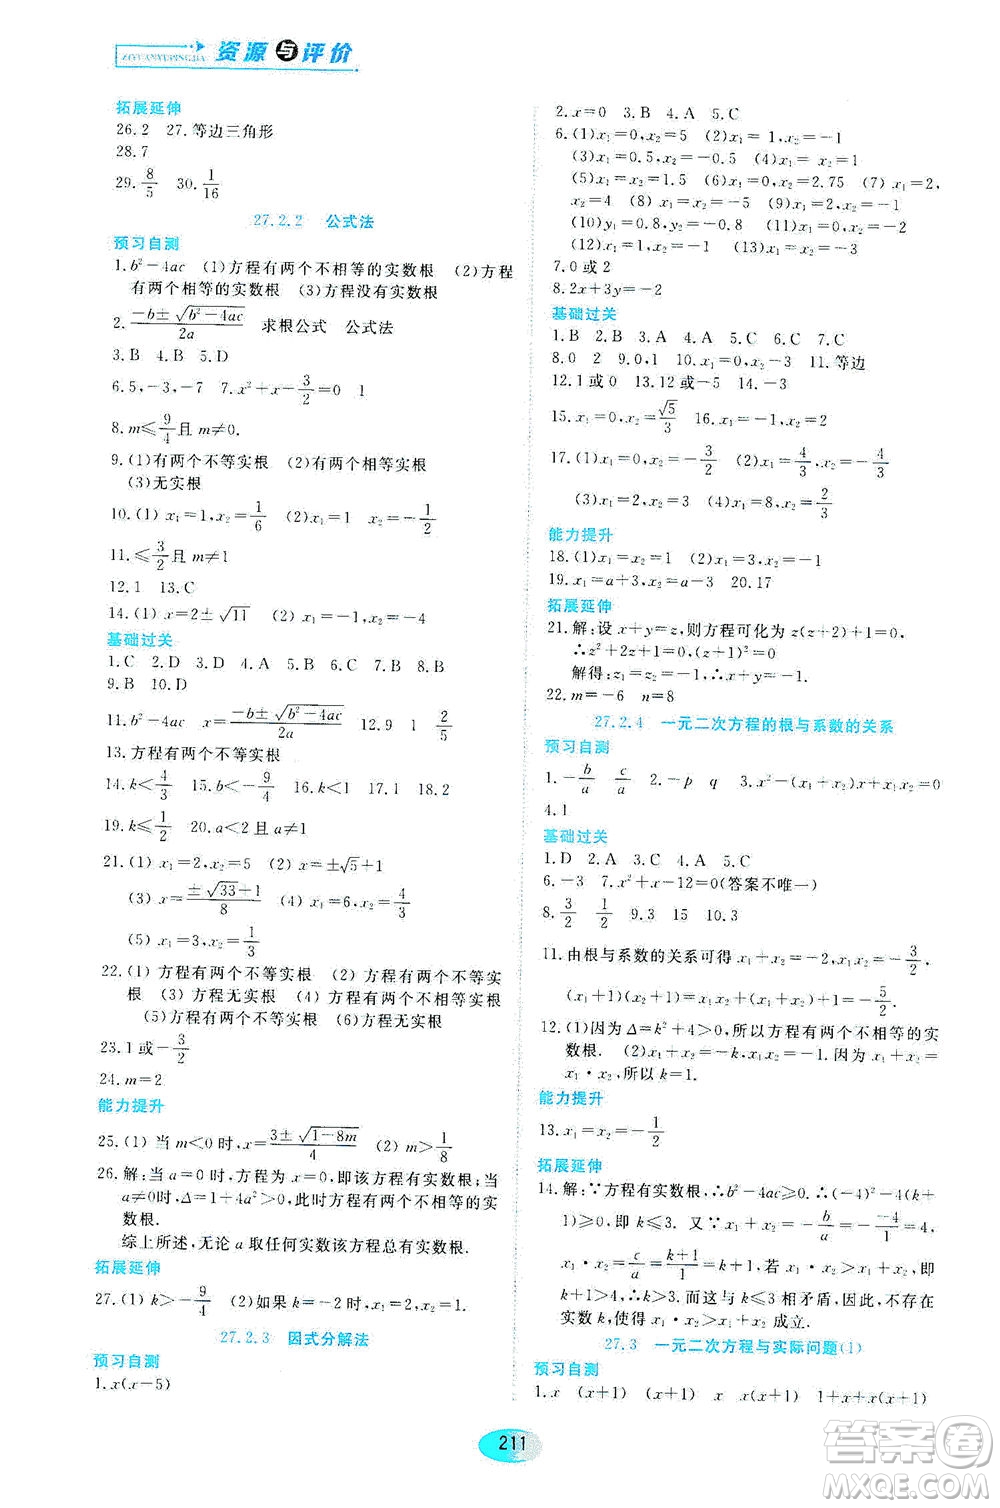 ZIYUANYUPINGJIA 资源与评价
拓展延伸
26.2 27.等边三角形
28.7
29. 8/5 30. 1/16
27.2.2 公式法
预习自测
1.b²－4ac (1)方程有两个不相等的实数根 (2)方程
有两个相等的实数根 (3)方程没有实数根
2. (－b±√(b²－4ac))/2a 求根公式 公式法
3.B 4.A 5.D
6.5,－3,－7 7.x²＋x－3/2＝0 1
8.m≤9/4且 m≠0.
9.(1)有两个不等实根 (2)有两个相等实根
(3)无实根
10.(1) x₁＝1,x₂＝1/6 (2)x₁＝1 x₂＝－1/2
11.≤3/2且 m≠1
12.1 13.C
14.(1) x＝2±√11 (2) x₁＝－1,x₂＝－4
基础过关
1.C 2.D 3.D 4.A 5.D 6.A 7.B 8.D
9.B 10.D
11.b²－4ac x＝(－b±√(b²－4ac))/2a 12.9 1 2/5
13.方程有两个不等实根
14.k＜4/3 15.－9/4 16.k＜1 17.1 18.2
19.k≤1/2 20.a＜2 且 a≠1
21.(1) x₁＝2,x₂＝5 (2) x＝±√5＋1
(3) x＝(±√33＋1)/8 (4) x₁＝6,x₂＝4/3
(5) x₁＝3,x₂＝－1/3
22.(1) 方程有两个不等实根 (2) 方程有两个不等实
根 (3) 方程无实根 (4) 方程有两个相等实根
(5)方程有两个不等实根 (6)方程无实根
23.1 或－3/2
24.m＝2
能力提升
25.(1) 当 m＜0 时,x＝(3±√(1－8m))/4 (2) m＞1/8
26.解:当 a＝0 时,方程为 x＝0,即该方程有实数根;当
a≠0 时,Δ＝1＋4a²＞0,此时方程有两个不相等的实
数根.
综上所述,无论 a 取任何实数该方程总有实数根.
拓展延伸
27.(1) k＞－9/4 (2)如果 k＝－2,x₁＝2,x₂＝1.
27.2.3 因式分解法
预习自测
1.x(x－5)
2.x＝0 3.B 4.A 5.C
6.(1)x₁＝0,x₂＝5 (2)x₁＝1,x₂＝－1
(3)x₁＝0,x₂＝－0.5 (4)x₁＝x₂＝1
(5)x₁＝x₂＝1.5 (6)x₁＝x₂＝2.75 (7) x₁＝2,
x₂＝4 (8) x₁＝3,x₂＝2 (9)x₁＝2,x₂＝－1
(10)y₁＝0.8,y₂＝－0.8 (11)x₁＝2,x₂＝1
(12)x₁＝x₂＝－1 (13)x₁＝x₂＝－1
7.0 或 2
8.2x＋3y＝－2
基础过关
1.B 2.B 3.A 4.A 5.C 6.C 7.C
8.0 2 9.0,1 10.x₁＝0,x₂＝－3 11.等边
12.1 或 0 13.12 或－5 14.－3
15.x₁＝0,x₂＝√5/3 16.x₁＝－1,x₂＝2
17.(1)x₁＝0,x₂＝－3/2 (2)x₁＝4/3,x₂＝－4/3
(3)x₁＝2,x₂＝3 (4)x₁＝8,x₂＝2/3
能力提升
18.(1)x₁＝x₂＝1 (2)x₁＝3,x₂＝－1
19.x₁＝a＋3,x₂＝a－3 20.17
拓展延伸
21.解:设 x＋y＝z,则方程可化为 z(z＋2)＋1＝0.
∴z²＋2z＋1＝0. (z＋1)²＝0.
解得:z₁＝z₂＝－1. ∴x＋y＝－1.
22.m＝－6 n＝8
27.2.4 一元二次方程的根与系数的关系
预习自测
1.－b/a c/a 2.－p q 3.x²－(x₁＋x₂)x＋x₁x₂＝0
4.1
基础过关
1.D 2.A 3.C 4.A 5.C
6.－3 7.x²＋x－12＝0(答案不唯一)
8. 3/2 1/2 9.3 15 10.3
11.由根与系数的关系可得 x₁＋x₂＝－2,x₁·x₂＝－3/2,
(x₁＋1)(x₂＋1)＝x₁·x₂＋x₁＋x₂＋1＝－5/2.
12.(1)因为 Δ＝k²＋4＞0,所以方程有两个不相等的实
数根. (2)x₁＋x₂＝－k,x₁x₂＝－1.因为 x₁＋x₂＝
x₁·x₂,所以 k＝1.
能力提升
13.x₁＝－1,x₂＝－1/2
拓展延伸
14.解:∵方程有实数根,∴b²－4ac≥0.∴(－4)²－4(k＋
1)≥0,即 k≤3. 又∵x₁＋x₂＝－b/a＝－(－4)/1＝4,
x₁·x₂＝c/a＝(k＋1)/1＝k＋1,若 x₁·x₂＞x₁＋x₂,即 k＋1＞
4,∴k＞3. 而这与 k≤3 相矛盾,因此,不存在
实数 k,使得 x₁·x₂＞x₁＋x₂ 成立.
27.3 一元二次方程与实际问题(1)
预习自测
1.x (x＋1) (x＋1) x x(x＋1) 1＋x＋x(x＋1)
211
答案圈
MXQE.COM